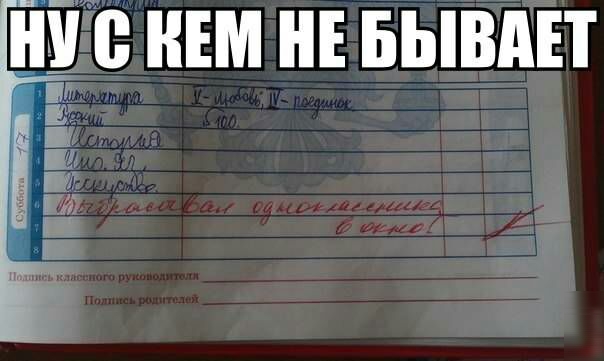 НУ С КЕМ НЕ БЫВАЕТ
1 Литература V - любовь, IV - поединок
2 Русский § 100.
3 История
4 Ино. яз.
5 Исскуство.
6 Выбрасывал одноклассника
7 в окно!
8
Суббота 17
Подпись классного руководителя
Подпись родителей